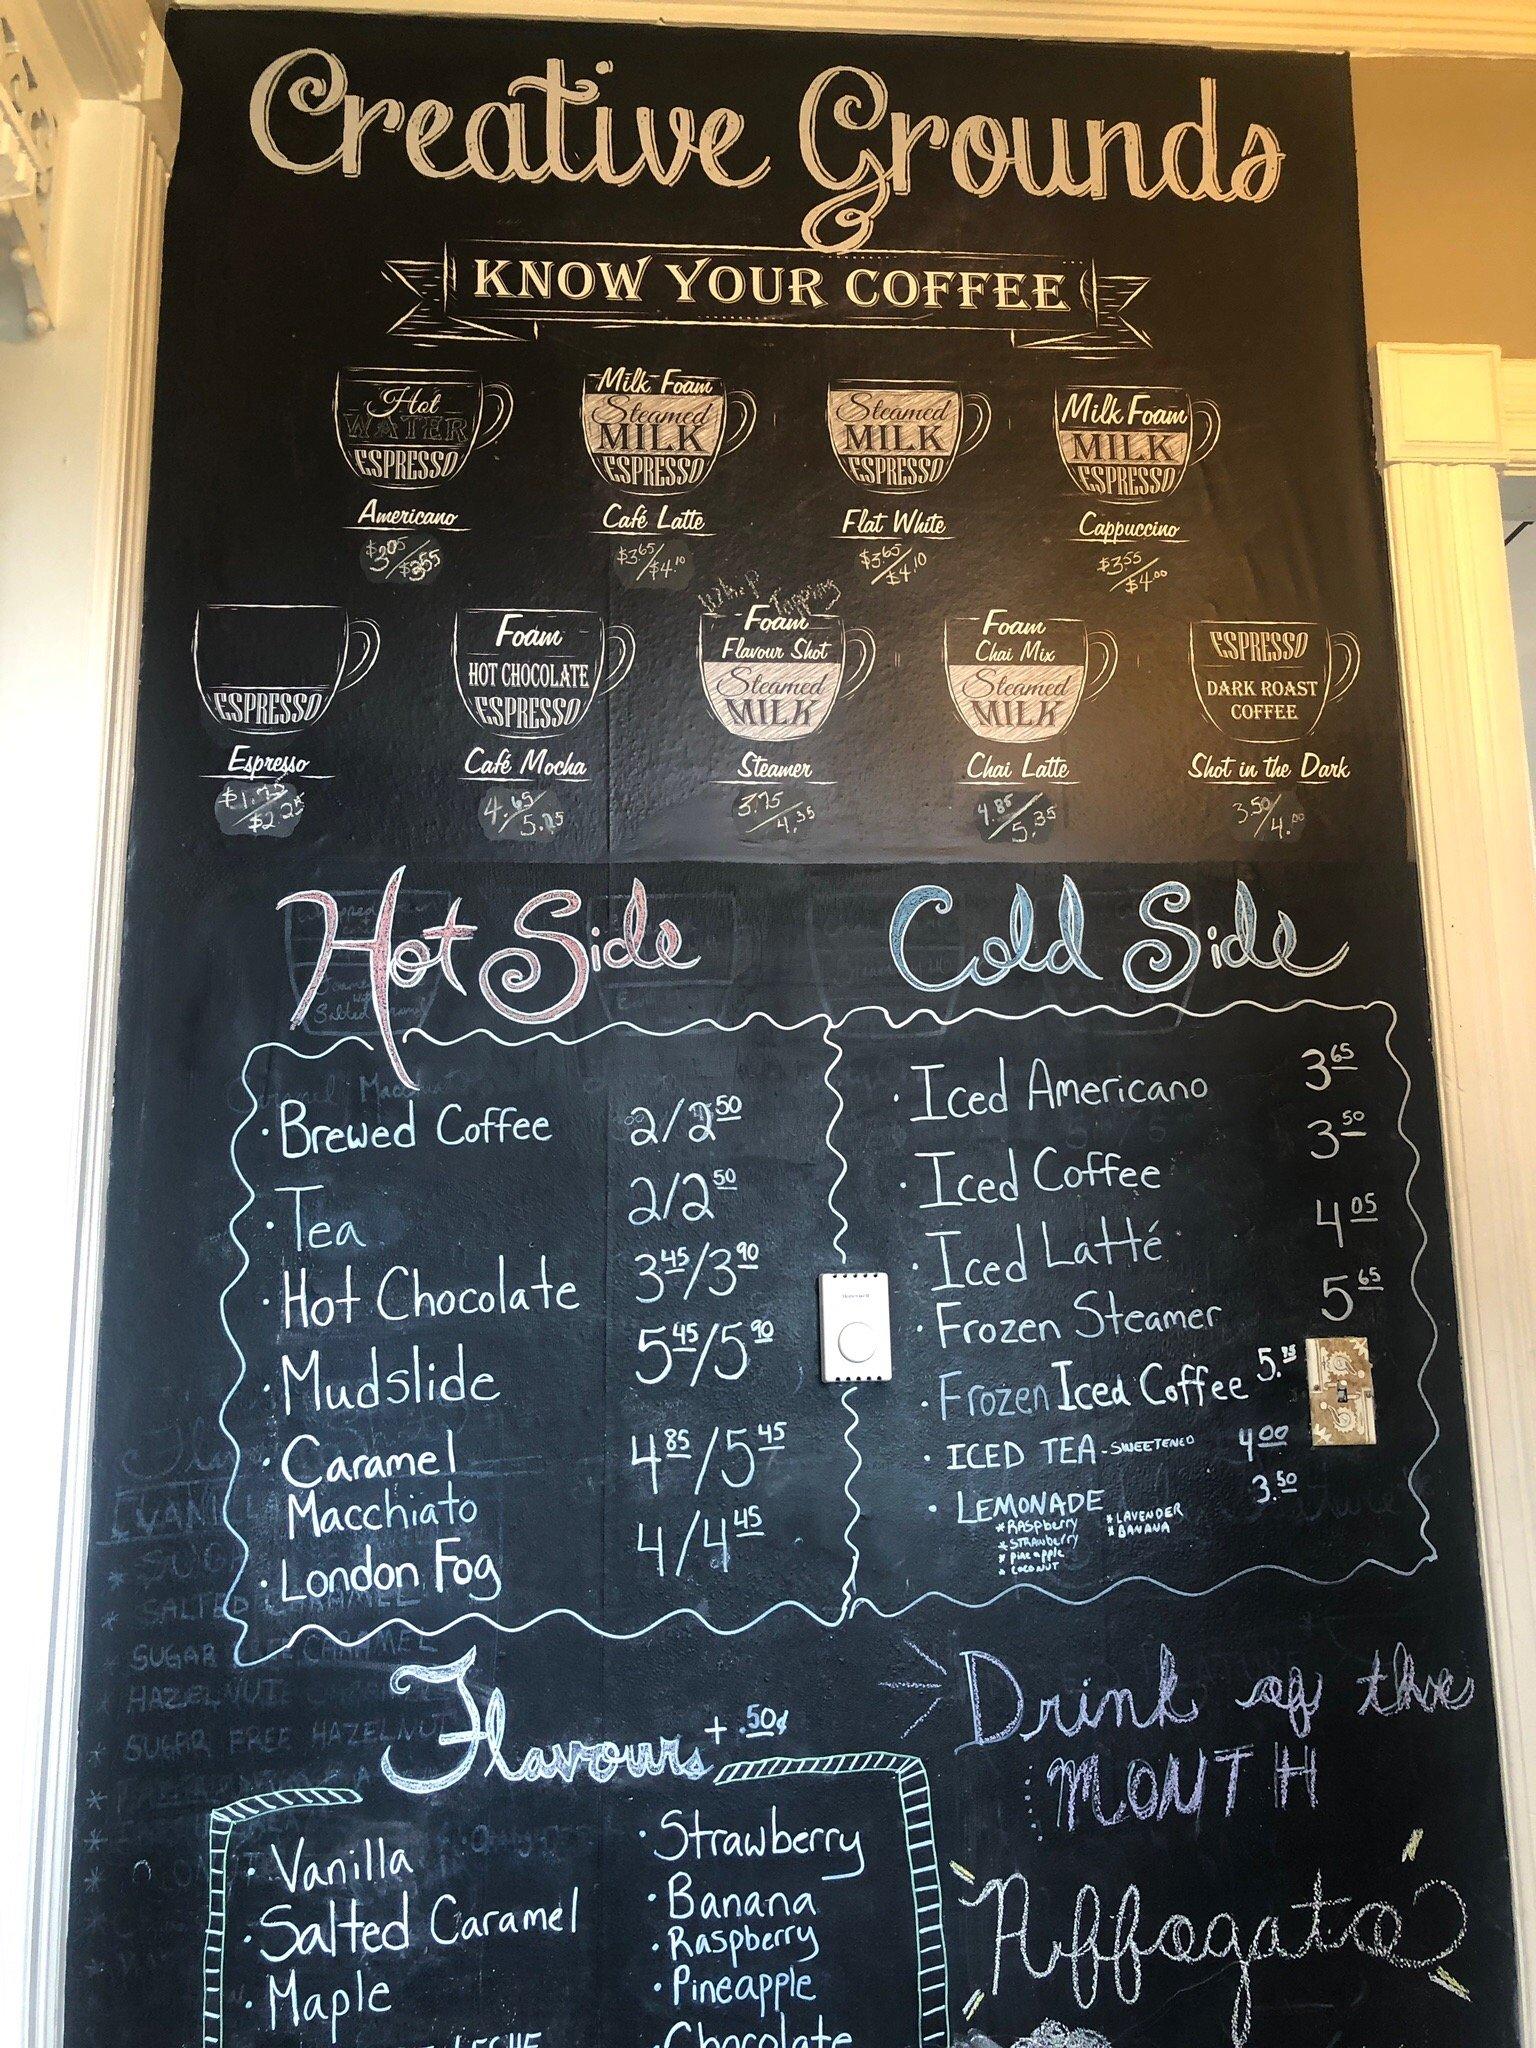 Creative Grounds
KNOW YOUR COFFEE
Hot
WATER
ESPRESSO
Americano
$3.05/$3.55
Milk Foam
Steamed
MILK
ESPRESSO
Café Latte
$3.65/$4.10
Steamed
MILK
ESPRESSO
Flat White
$3.65/$4.10
Milk Foam
MILK
ESPRESSO
Cappuccino
$3.55/$4.00
ESPRESSO
Espresso
Foam
HOT CHOCOLATE
ESPRESSO
Café Mocha
4.65/5.15
Whip Topping
Foam
Flavour Shot
Steamed
MILK
Steamer
3.75/4.35
Foam
Chai Mix
Steamed
MILK
Chai Latte
4.85/5.35
ESPRESSO
DARK ROAST
COFFEE
Shot in the Dark
3.50/4.00
Hot Side
· Brewed Coffee 2/2.50
· Tea 2/2.50
· Hot Chocolate 3.45/3.90
· Mudslide 5.45/5.90
· Caramel 4.85/5.45
Macchiato
· London Fog 4/4.45
Cold Side
· Iced Americano 3.65
· Iced Coffee 3.50
· Iced Latté 4.05
· Frozen Steamer 5.65
· Frozen Iced Coffee
· ICED TEA - SWEETENED 4.00
· LEMONADE 3.50
* RASPberry * LAVENDER
* STRAWberry * BANANA
* pineapple
* COCONUT
Flavours + .50¢
· Vanilla
· Salted Caramel
· Maple
· Strawberry
· Banana
· Raspberry
· Pineapple
Chocolate
Drink of the
MONTH
Affogato
Honeywell